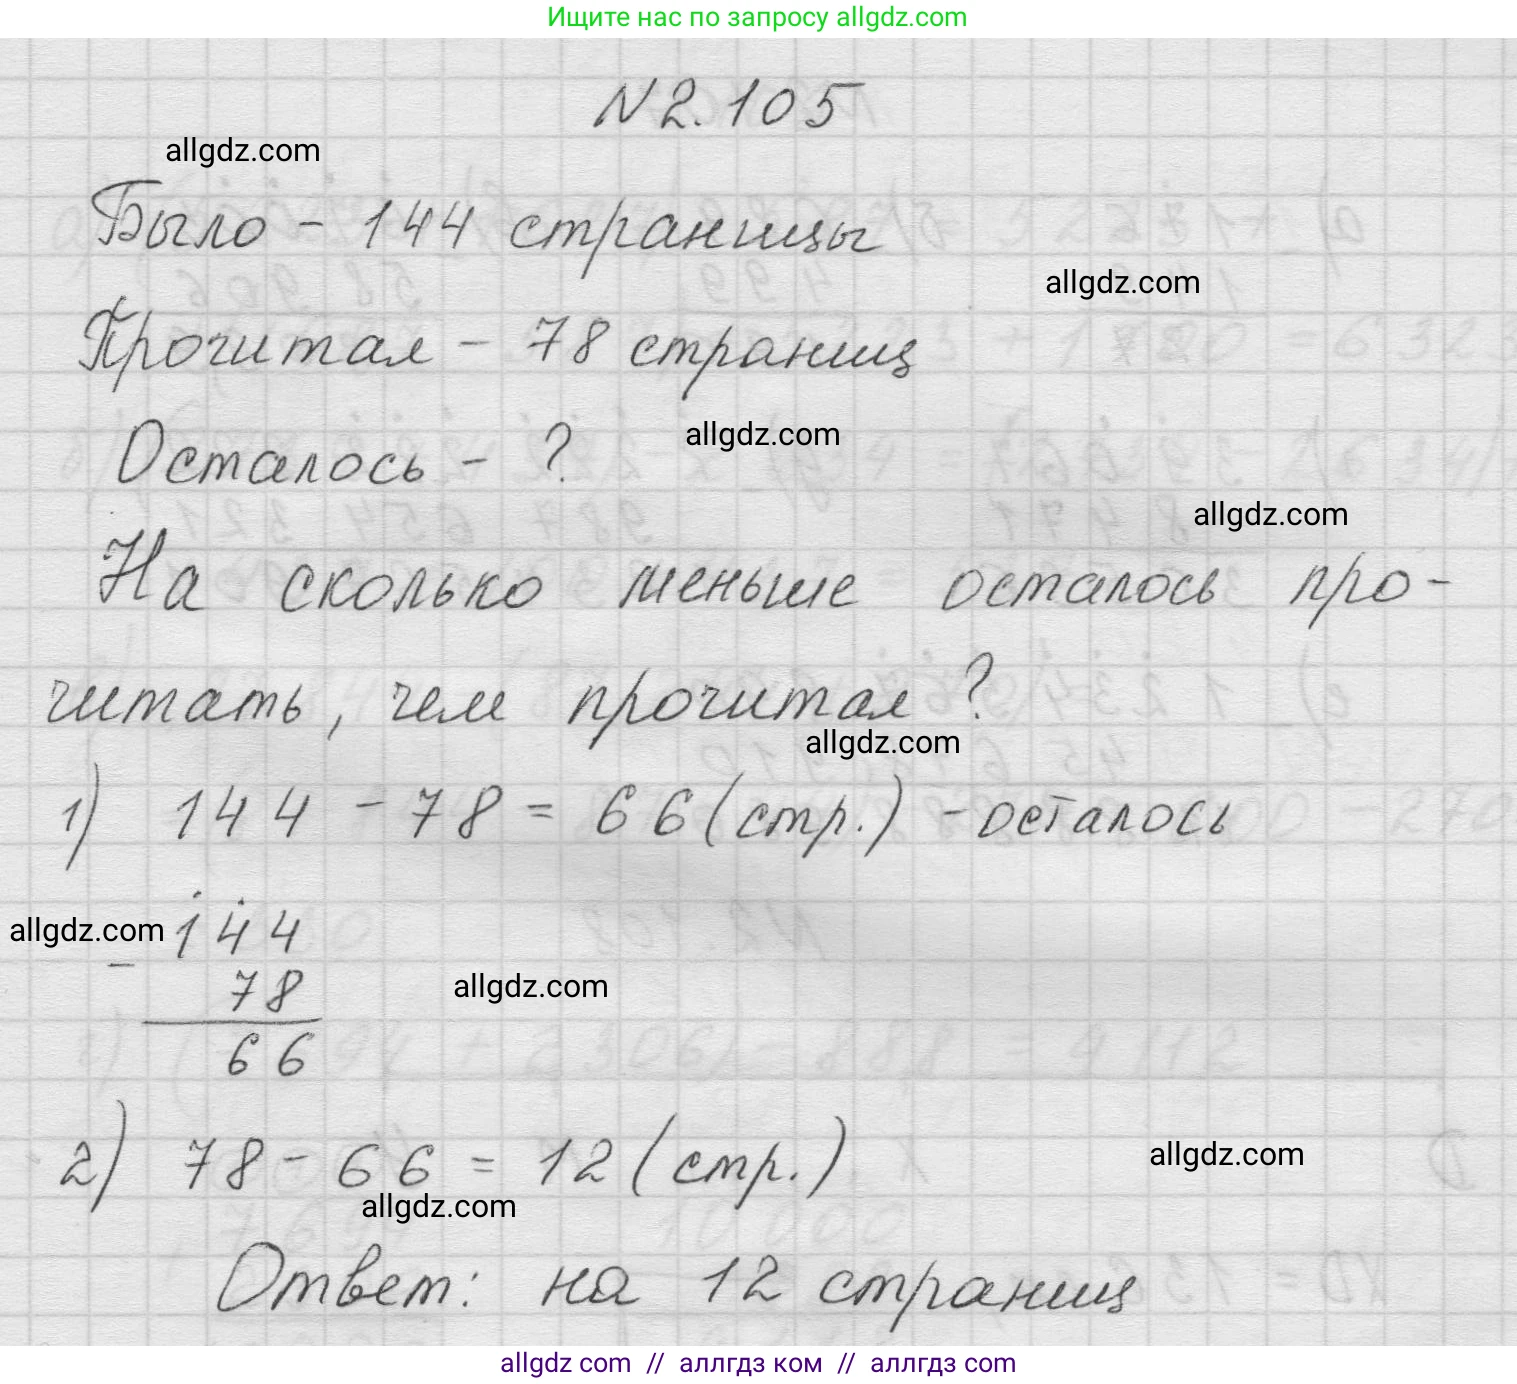 Ищите нас по запросу allgdz.com
N 2.105
allgdz.com
Было - 144 страницы
allgdz.com
Прочитал - 78 страниц
allgdz.com
Осталось - ?
allgdz.com
На сколько меньше осталось про-
читать, чем прочитал?
allgdz.com
1) 144 - 78 = 66 (стр.) - осталось
allgdz.com
144
-
78
allgdz.com
66
2) 78 - 66 = 12 (стр.)
allgdz.com
allgdz.com
Ответ: на 12 страниц
allgdz com // аллгдз ком // аллгдз com